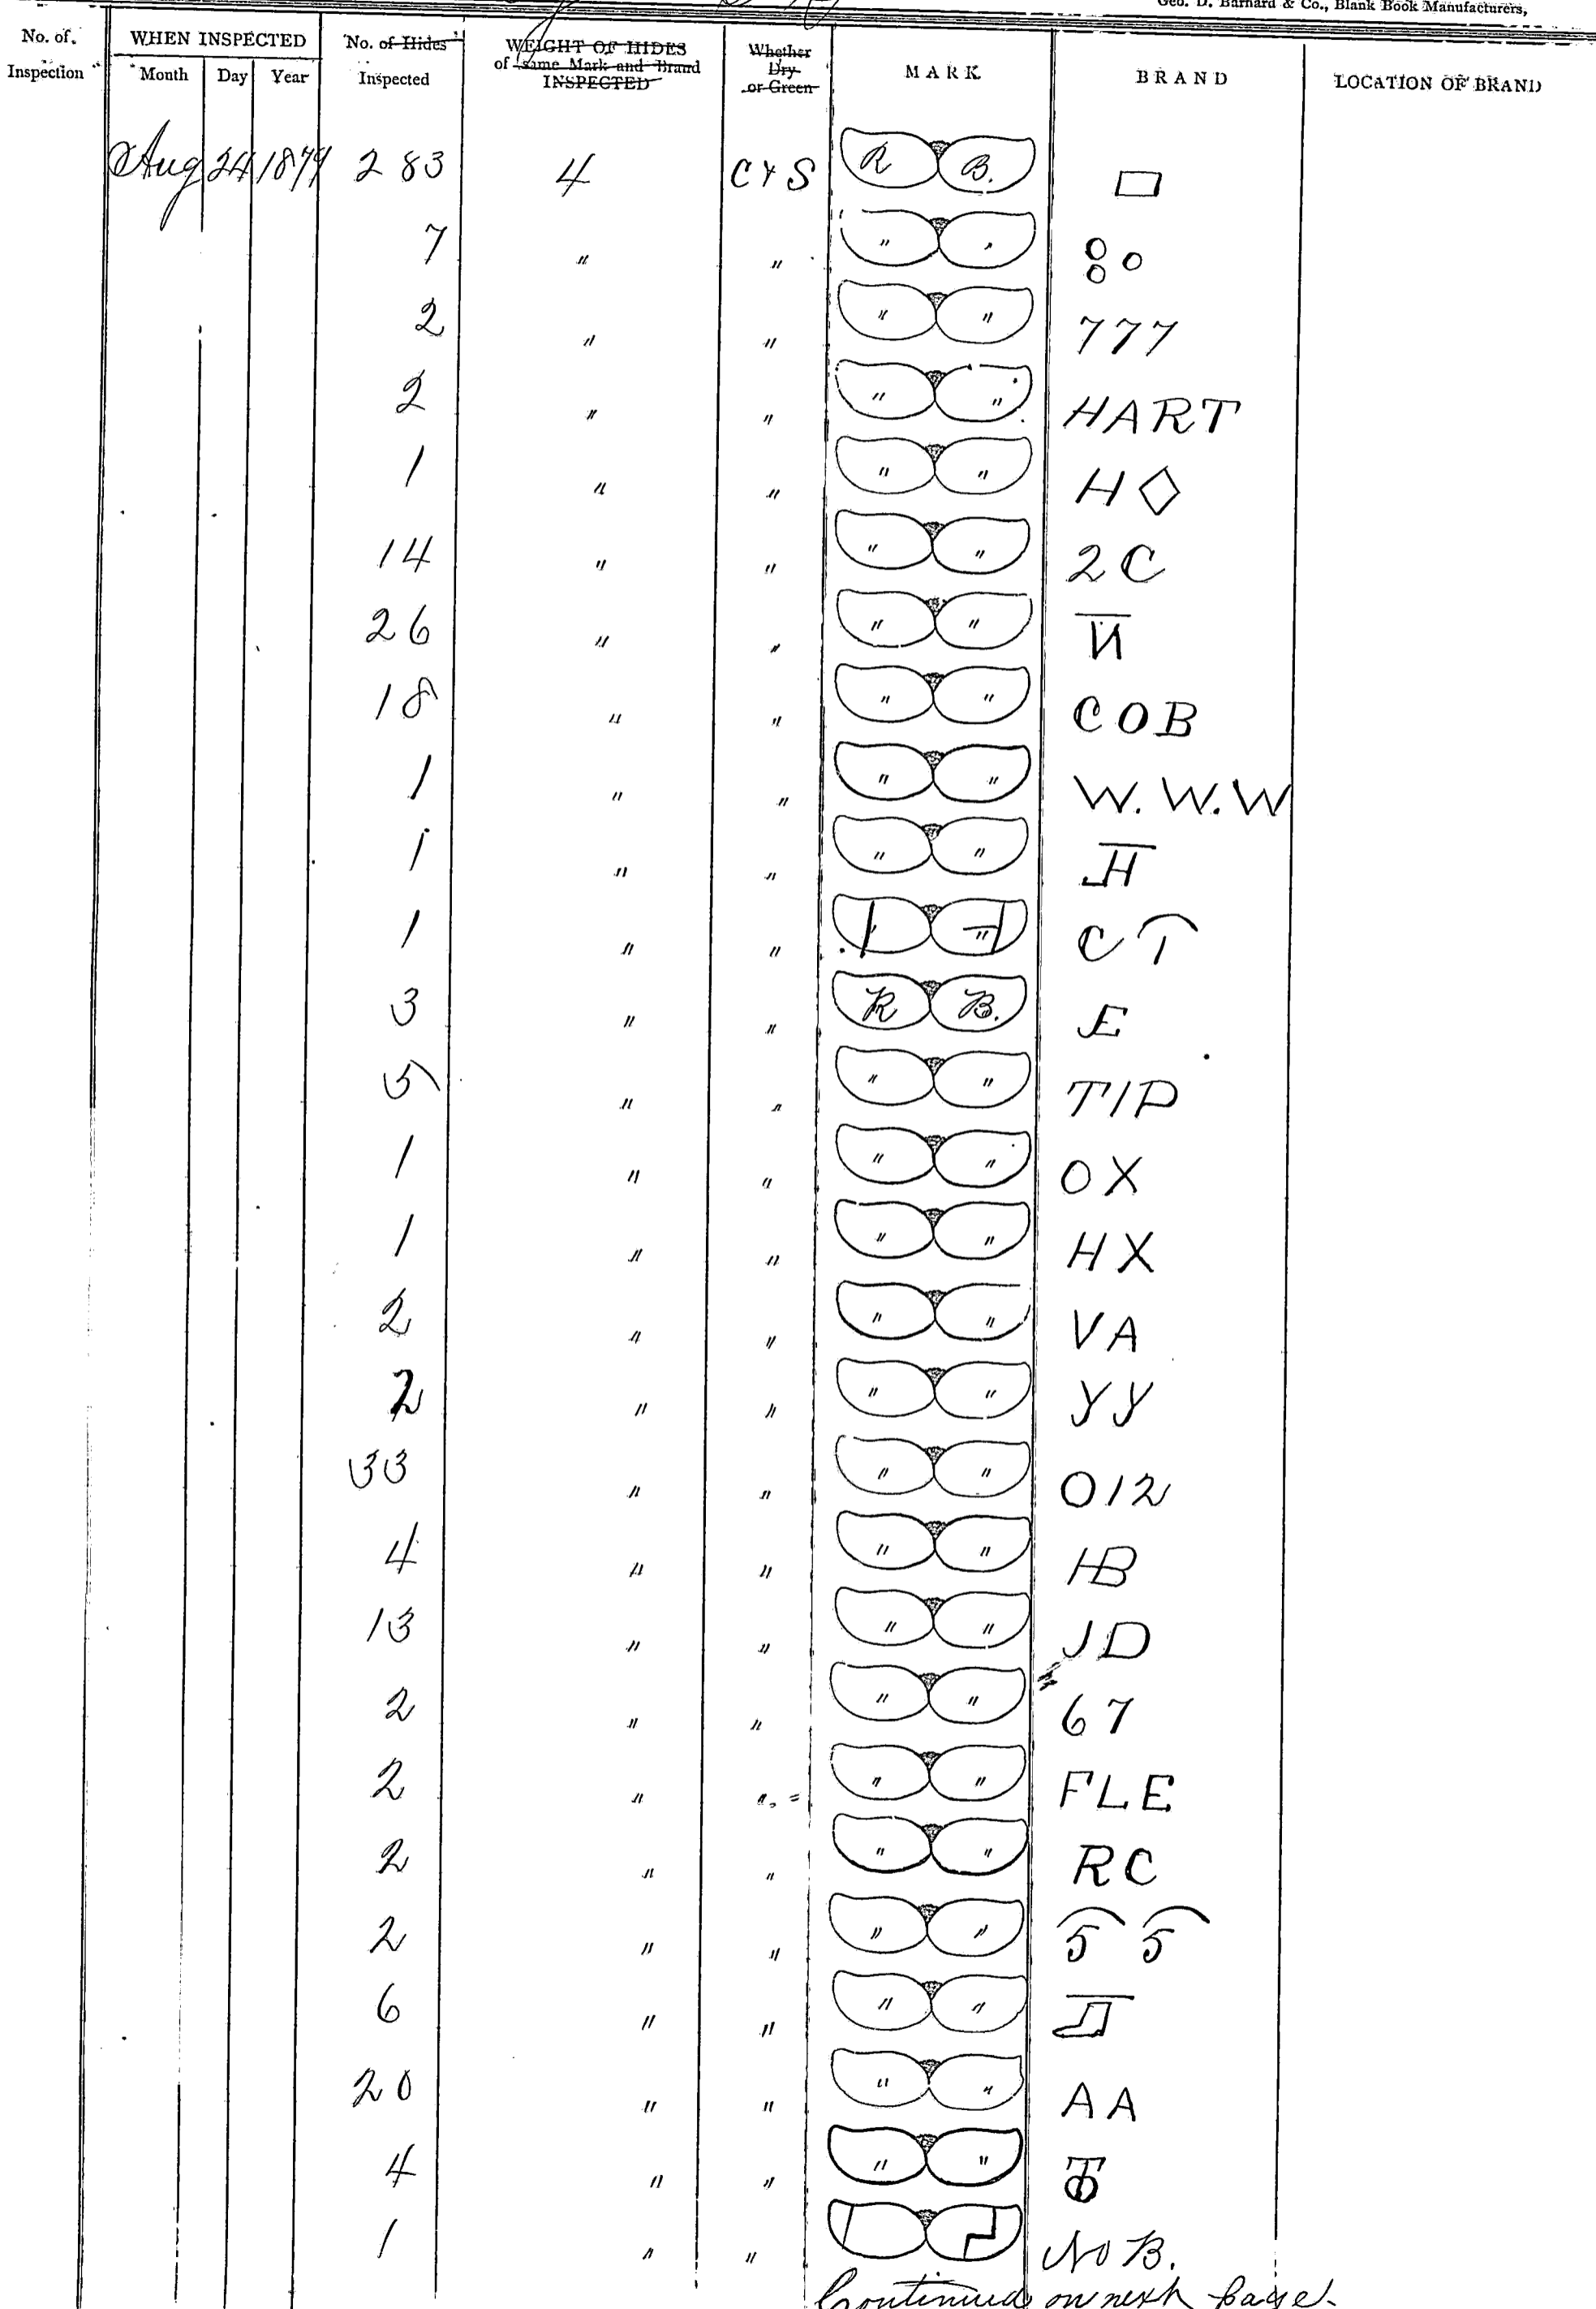 Geo. D. Barnard & Co., Blank Book Manufacturers,
No. of Inspection WHEN INSPECTED Month Day Year No. of Hides Inspected WEIGHT OF HIDES of same Mark and Brand INSPECTED Whether Dry or Green MARK BRAND LOCATION OF BRAND
Aug 24 1879 283 4 C Y S R B.
7 " " " "
2 " " " " 777
2 " " " " HART
1 " " " " H ◇
14 " " " " 2C
26 " " " "
18 " " " " COB
1 " " " " W. W. W
1 " " " "
1 " " C T
3 " " R B. E
5 " " " " TIP
1 " " " " OX
1 " " " " HX
2 " " " " VA
2 " " " " YY
33 " " " " 012
4 " " " " HB
13 " " " " JD
2 " " " " 67
2 " " " " FLE
2 " " " " RC
2 " " " " 5 5
6 " " " "
20 " " " " AA
4 " " " "
1 " " No B.
Continued on next page.